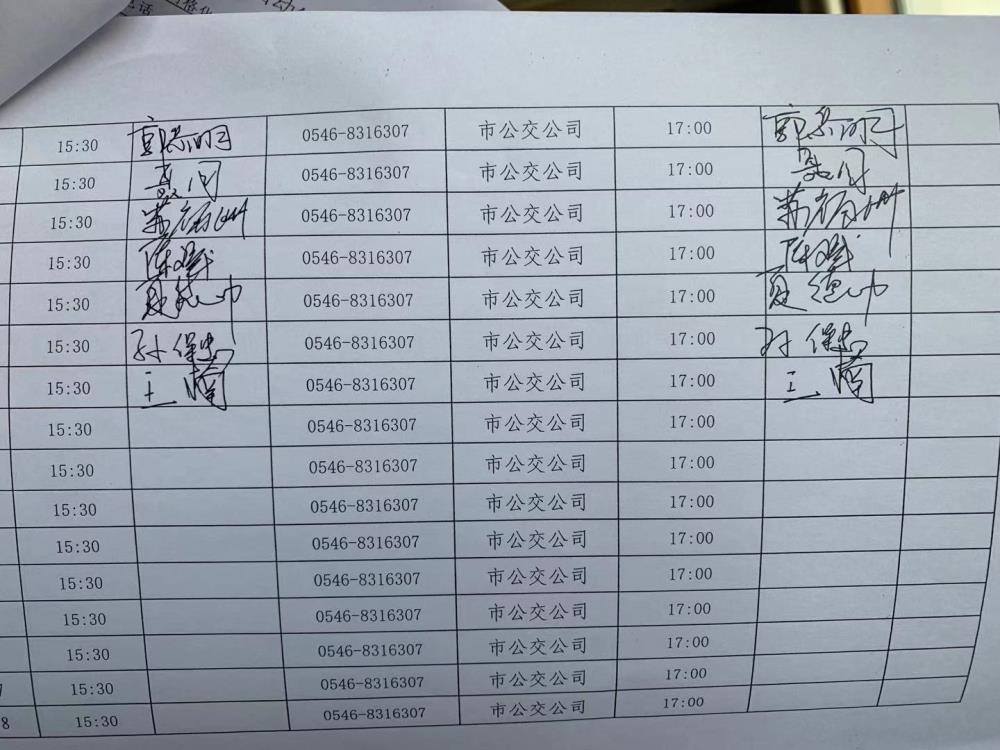 15:30 0546-8316307 市公交公司 17:00
15:30 0546-8316307 市公交公司 17:00
15:30 0546-8316307 市公交公司 17:00
15:30 0546-8316307 市公交公司 17:00
15:30 0546-8316307 市公交公司 17:00
15:30 孙保忠 0546-8316307 市公交公司 17:00 孙保忠
15:30 王 0546-8316307 市公交公司 17:00 王
15:30 0546-8316307 市公交公司 17:00
15:30 0546-8316307 市公交公司 17:00
15:30 0546-8316307 市公交公司 17:00
15:30 0546-8316307 市公交公司 17:00
15:30 0546-8316307 市公交公司 17:00
15:30 0546-8316307 市公交公司 17:00
15:30 0546-8316307 市公交公司 17:00
7 15:30 0546-8316307 市公交公司 17:00
8 15:30 0546-8316307 市公交公司 17:00